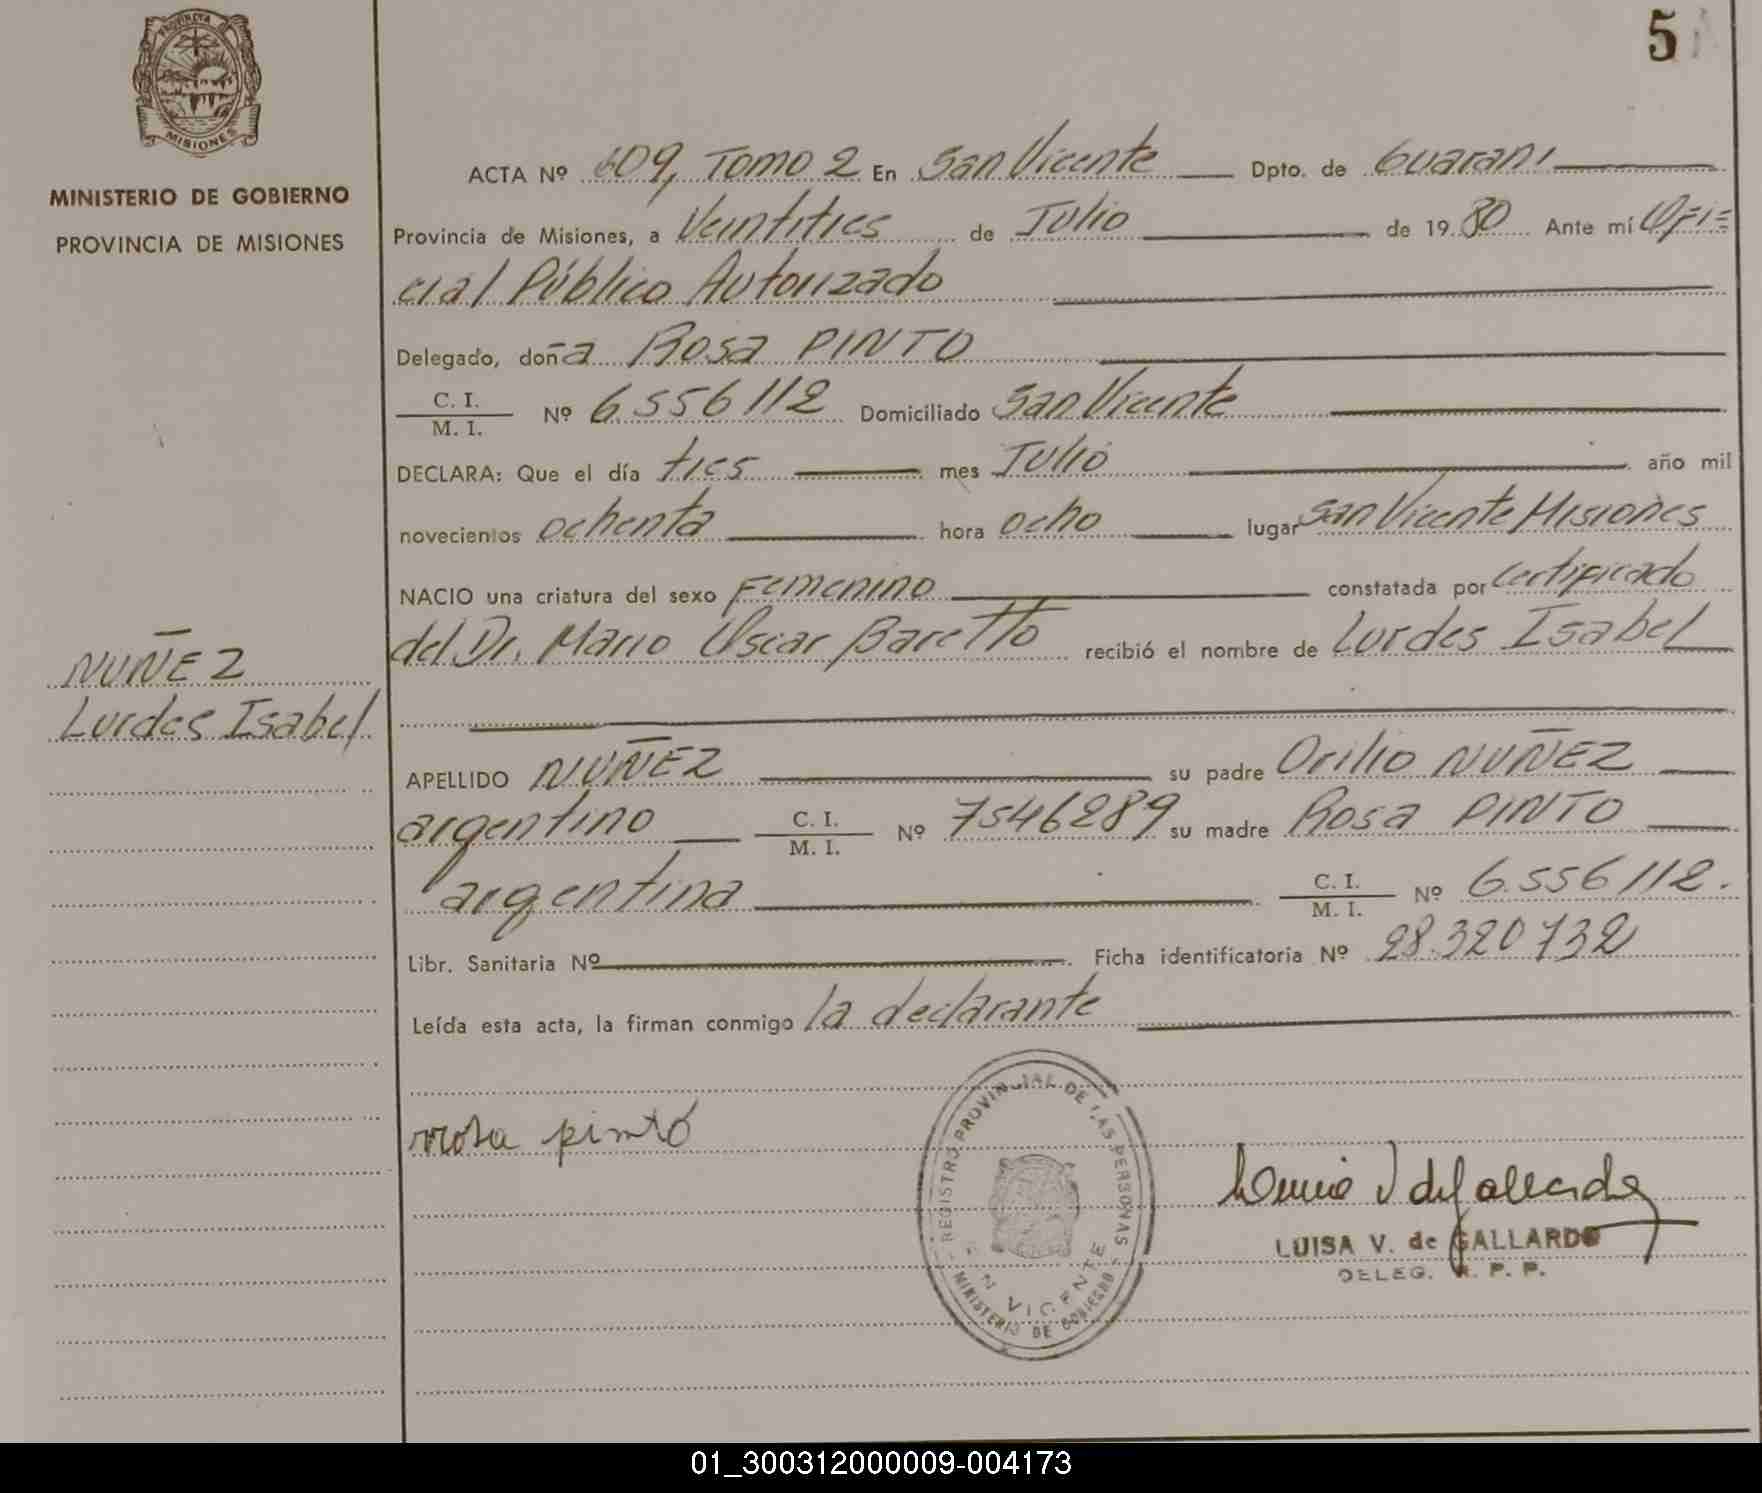 5
PROVINCIA
MISIONES
MINISTERIO DE GOBIERNO
PROVINCIA DE MISIONES
ACTA Nº 609, Tomo 2 En San Vicente Dpto. de Guaraní
Provincia de Misiones, a Veintitres de Julio de 1980 Ante mí Ofi=
cial Público Autorizado
Delegado, doña Rosa PINTO
C. I.
M. I. Nº 6.556112 Domiciliado San Vicente
DECLARA: Que el día tres mes Julio año mil
novecientos ochenta hora ocho lugar San Vicente Misiones
NACIO una criatura del sexo Femenino constatada por Certificado
del Dr. Mario Oscar Baretto recibió el nombre de Lurdes Isabel
NUÑEZ
Lurdes Isabel
APELLIDO NUÑEZ su padre Orilio NUÑEZ
argentino C. I.
M. I. Nº 7546289 su madre Rosa PINTO
argentina C. I.
M. I. Nº 6.556112.
Libr. Sanitaria Nº Ficha identificatoria Nº 28.320732
Leída esta acta, la firman conmigo la declarante
rrosa pinto
REGISTRO PROVINCIAL DE LAS PERSONAS
VICENTE
MINISTERIO DE GOBIERNO
LUISA V. de GALLARDO
DELEG. R. P. P.
01_300312000009-004173